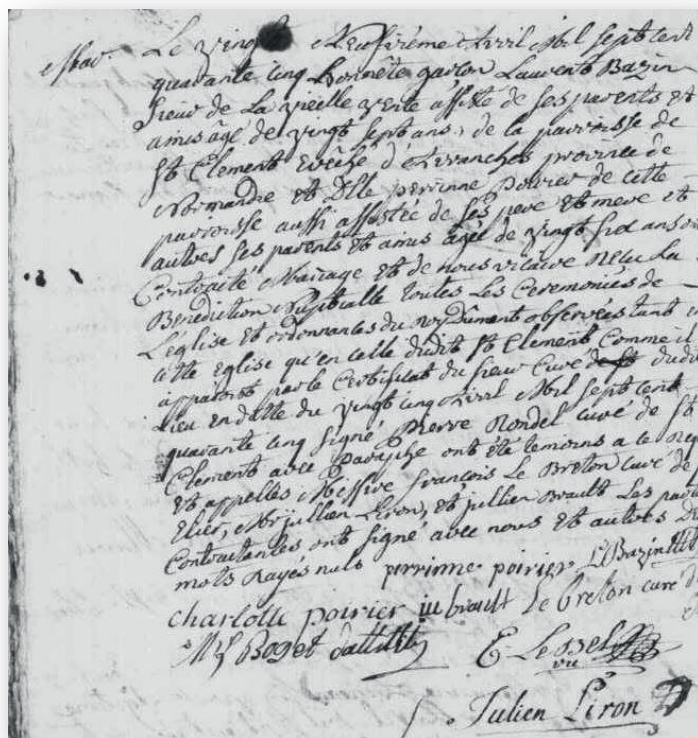 Le vingt Neufvieme Avril Mil Sept Cent
Mar. quarante cinq honnête garcon Laurent Bazin
Sieur de La vieille verte assisté de ses parents et
amis âgé de vingt sept ans, de la parroisse de
St Clement Evêché d'Avranches province de
Normandie et Dlle perrinne Poirier de cette
parroisse aussi assistée de ses pere et mere et
autres ses parents et amis âgée de vingt six ans ont
Contracté Mariage et de nous vicaire receu La
Benediction Nuptialle toutes Les Ceremonies de
L'église et ordonnances du roy Dument observées tant en
cette Eglise qu'en celle dudit St Clement Comme il
apparoit par le Certificat du sieur Curé dudit
Lieu en datte du vingt cinq Avril Mil Sept cent
quarante cinq signé Pierre Rondel curé de St
Clement avec Paraphe ont été temoins a ce
Et appelles Missire François Le Breton curé de
Elier, Mr jullien Liron, et jullien Brault Les
Contractantes ont signé avec nous et autres
mots rayes nuls perrinne poirier L Bazin
charlotte poirier ju brault Le breton curé
Boget
E Lessel
Julien Liron